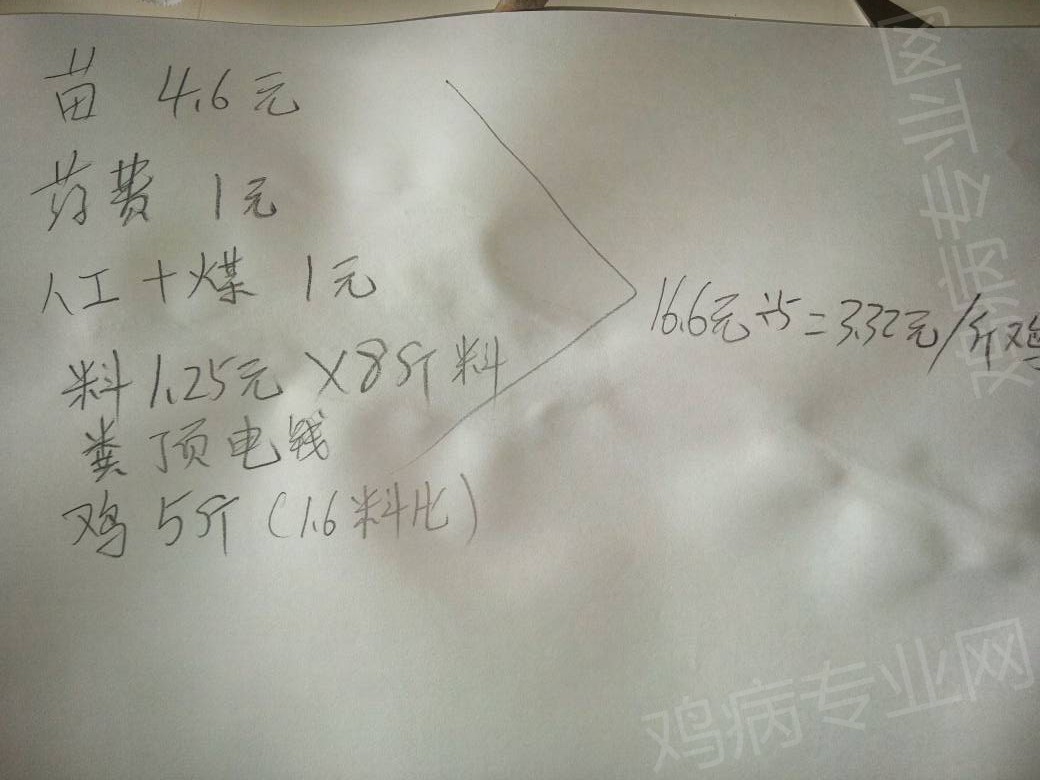 苗 4.6元
药费 1元
人工+煤 1元
料 1.25元 ×8斤料
粪顶电钱
鸡 5斤 (1.6料比)
16.6元÷5=3.32元/斤鸡
鸡病专业网
鸡病专业网